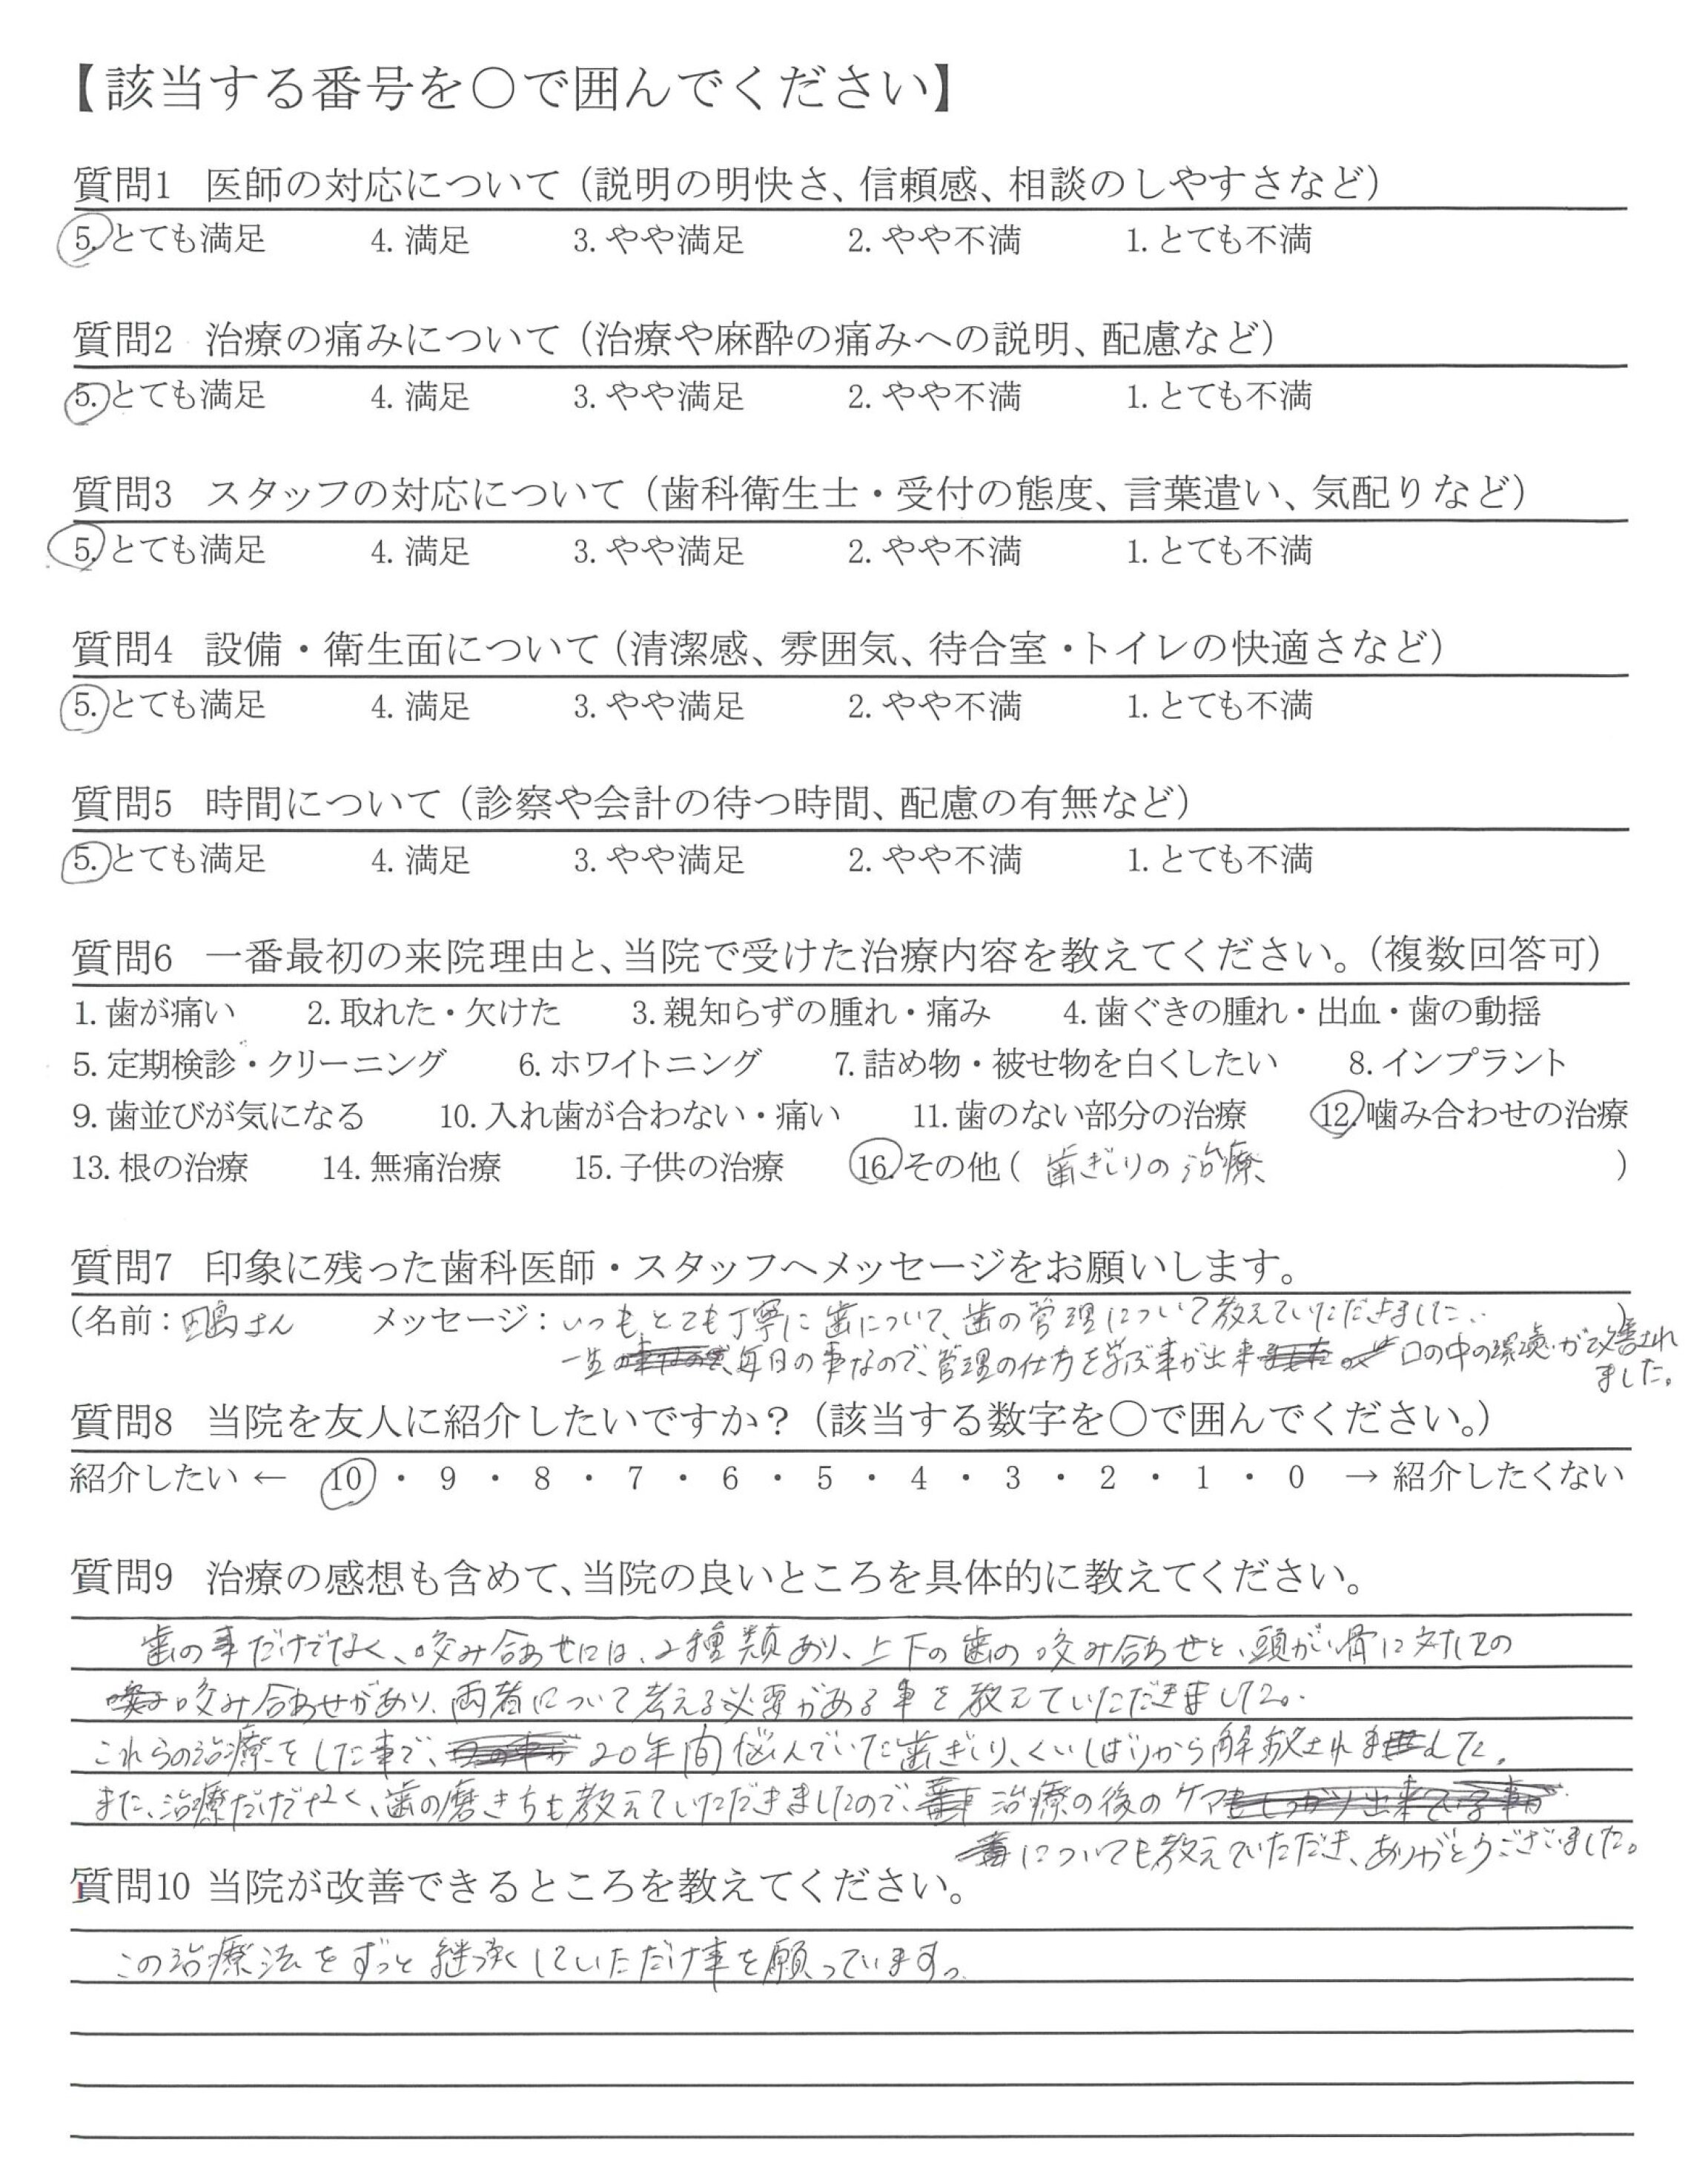 【該当する番号を〇で囲んでください】
質問1 医師の対応について（説明の明快さ、信頼感、相談のしやすさなど）
5. とても満足 4. 満足 3. やや満足 2. やや不満 1. とても不満
質問2 治療の痛みについて（治療や麻酔の痛みへの説明、配慮など）
5. とても満足 4. 満足 3. やや満足 2. やや不満 1. とても不満
質問3 スタッフの対応について（歯科衛生士・受付の態度、言葉遣い、気配りなど）
5. とても満足 4. 満足 3. やや満足 2. やや不満 1. とても不満
質問4 設備・衛生面について（清潔感、雰囲気、待合室・トイレの快適さなど）
5. とても満足 4. 満足 3. やや満足 2. やや不満 1. とても不満
質問5 時間について（診察や会計の待つ時間、配慮の有無など）
5. とても満足 4. 満足 3. やや満足 2. やや不満 1. とても不満
質問6 一番最初の来院理由と、当院で受けた治療内容を教えてください。（複数回答可）
1. 歯が痛い 2. 取れた・欠けた 3. 親知らずの腫れ・痛み 4. 歯ぐきの腫れ・出血・歯の動揺
5. 定期検診・クリーニング 6. ホワイトニング 7. 詰め物・被せ物を白くしたい 8. インプラント
9. 歯並びが気になる 10. 入れ歯が合わない・痛い 11. 歯のない部分の治療 12. 噛み合わせの治療
13. 根の治療 14. 無痛治療 15. 子供の治療 16. その他（歯ぎしりの治療）
質問7 印象に残った歯科医師・スタッフへメッセージをお願いします。
（名前：田島さん メッセージ：いつもとても丁寧に歯について、歯の管理について教えていただきました。）
一生 毎日の事なので、管理の仕方を学ぶ事が出来 口の中の環境が改善され
ました。
質問8 当院を友人に紹介したいですか？（該当する数字を〇で囲んでください。）
紹介したい ← 10 ・ 9 ・ 8 ・ 7 ・ 6 ・ 5 ・ 4 ・ 3 ・ 2 ・ 1 ・ 0 → 紹介したくない
質問9 治療の感想も含めて、当院の良いところを具体的に教えてください。
歯の事だけでなく、咬み合わせには、2種類あり、上下の歯の咬み合わせと、頭がい骨に対しての
咬み合わせがあり、両者について考える必要がある事を教えていただきました。
これらの治療をした事で、20年間悩んでいた歯ぎしり、くいしばりから解放されました。
また、治療だけでなく、歯の磨き方も教えていただきましたので、治療の後のケア
についても教えていただき、ありがとうございました。
質問10 当院が改善できるところを教えてください。
この治療法をずっと継承していただけ事を願っています。